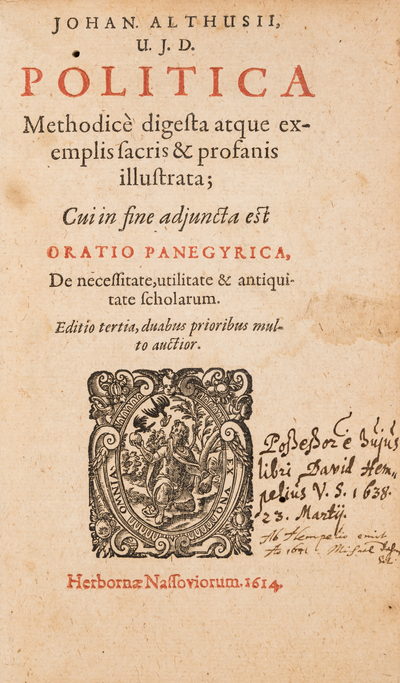 JOHAN. ALTHUSII,
U. J. D.
POLITICA
Methodicè digeſta atque ex-
emplis ſacris & profanis
illuſtrata;
Cui in fine adjuncta eſt
ORATIO PANEGYRICA,
De neceſſitate, utilitate & antiqui-
tate ſcholarum.
Editio tertia, duabus prioribus mul-
to auctior.
OMNIA
EX VOLUN
Poßeßor e hujus
libri David Hem-
pelius V. S. 1638.
23. Martij.
Ab Hempelio emit
Ao
Herbornæ Naſſoviorum. 1614.